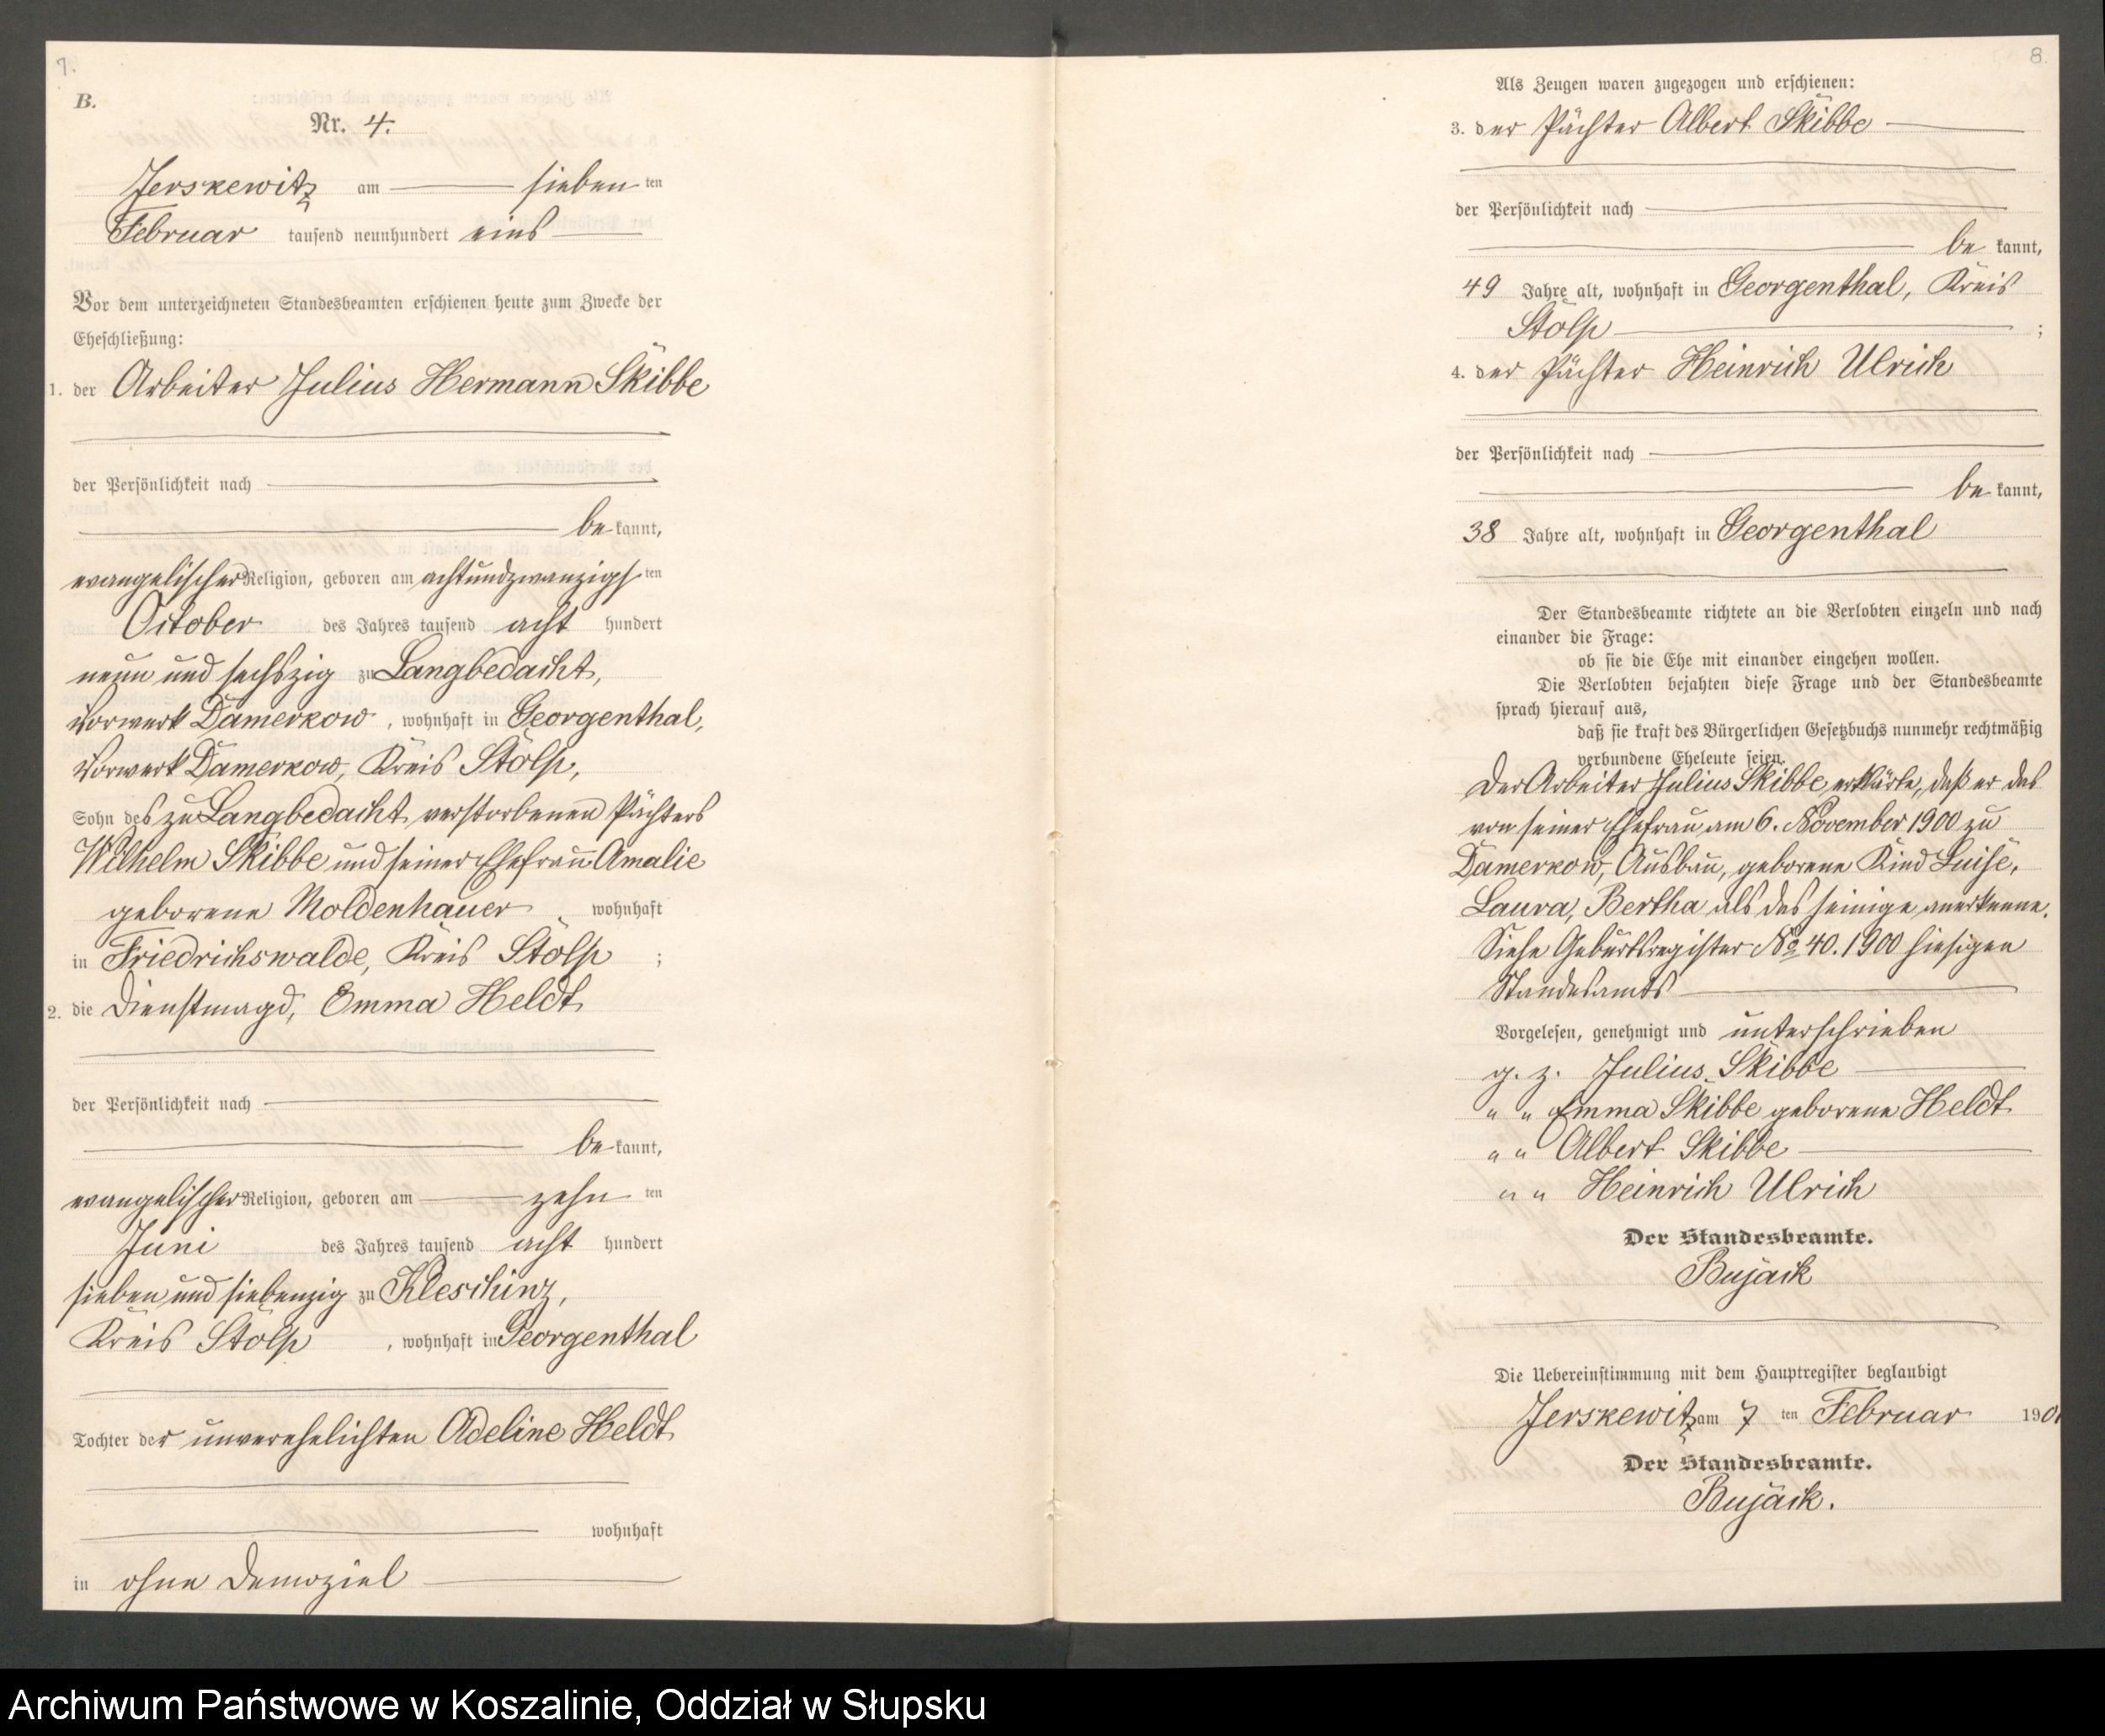 7.
B.
Nr. 4.
Jerskewitz am sieben ten
Februar tausend neunhundert eins
Vor dem unterzeichneten Standesbeamten erschienen heute zum Zwecke der
Eheschließung:
1. der Arbeiter Julius Hermann Skibbe
der Persönlichkeit nach
be kannt,
evangelischer Religion, geboren am achtundzwanzigs ten
October des Jahres tausend acht hundert
neun und sechszig zu Langbedacht,
Vorwerk Damerkow, wohnhaft in Georgenthal,
Vorwerk Damerkow, Kreis Stolp,
Sohn des zu Langbedacht verstorbenen Pächters
Wilhelm Skibbe und seiner Ehefrau Amalie
geborene Moldenhauer wohnhaft
in Friedrichswalde, Kreis Stolp ;
2. die Dienstmagd, Emma Heldt
der Persönlichkeit nach
be kannt,
evangelischer Religion, geboren am zehn ten
Juni des Jahres tausend acht hundert
sieben und siebenzig zu Kleschinz,
Kreis Stolp , wohnhaft in Georgenthal
Tochter der unverehelichten Adeline Heldt
wohnhaft
in ohne Domoziel
8.
Als Zeugen waren zugezogen und erschienen:
3. der Pächter Albert Skibbe
der Persönlichkeit nach
be kannt,
49 Jahre alt, wohnhaft in Georgenthal, Kreis
Stolp ;
4. der Pächter Heinrich Ulrich
der Persönlichkeit nach
be kannt,
38 Jahre alt, wohnhaft in Georgenthal
Der Standesbeamte richtete an die Verlobten einzeln und nach
einander die Frage:
ob sie die Ehe mit einander eingehen wollen.
Die Verlobten bejahten diese Frage und der Standesbeamte
sprach hierauf aus,
daß sie kraft des Bürgerlichen Gesetzbuchs nunmehr rechtmäßig
verbundene Eheleute seien.
Der Arbeiter Julius Skibbe, erklärte, daß er das
von seiner Ehefrau am 6. November 1900 zu
Damerkow, Ausbau, geborene Kind Luise,
Laura, Bertha als das seinige anerkenne.
Siehe Geburtsregister No 40. 1900 hiesigen
Standesamts
Vorgelesen, genehmigt und unterschrieben
g. z. Julius Skibbe
" " Emma Skibbe geborene Heldt
" " Albert Skibbe
" " Heinrich Ulrich
Der Standesbeamte.
Bujack
Die Uebereinstimmung mit dem Hauptregister beglaubigt
Jerskewitz am 7 ten Februar 1901
Der Standesbeamte.
Bujack.
Archiwum Państwowe w Koszalinie, Oddział w Słupsku